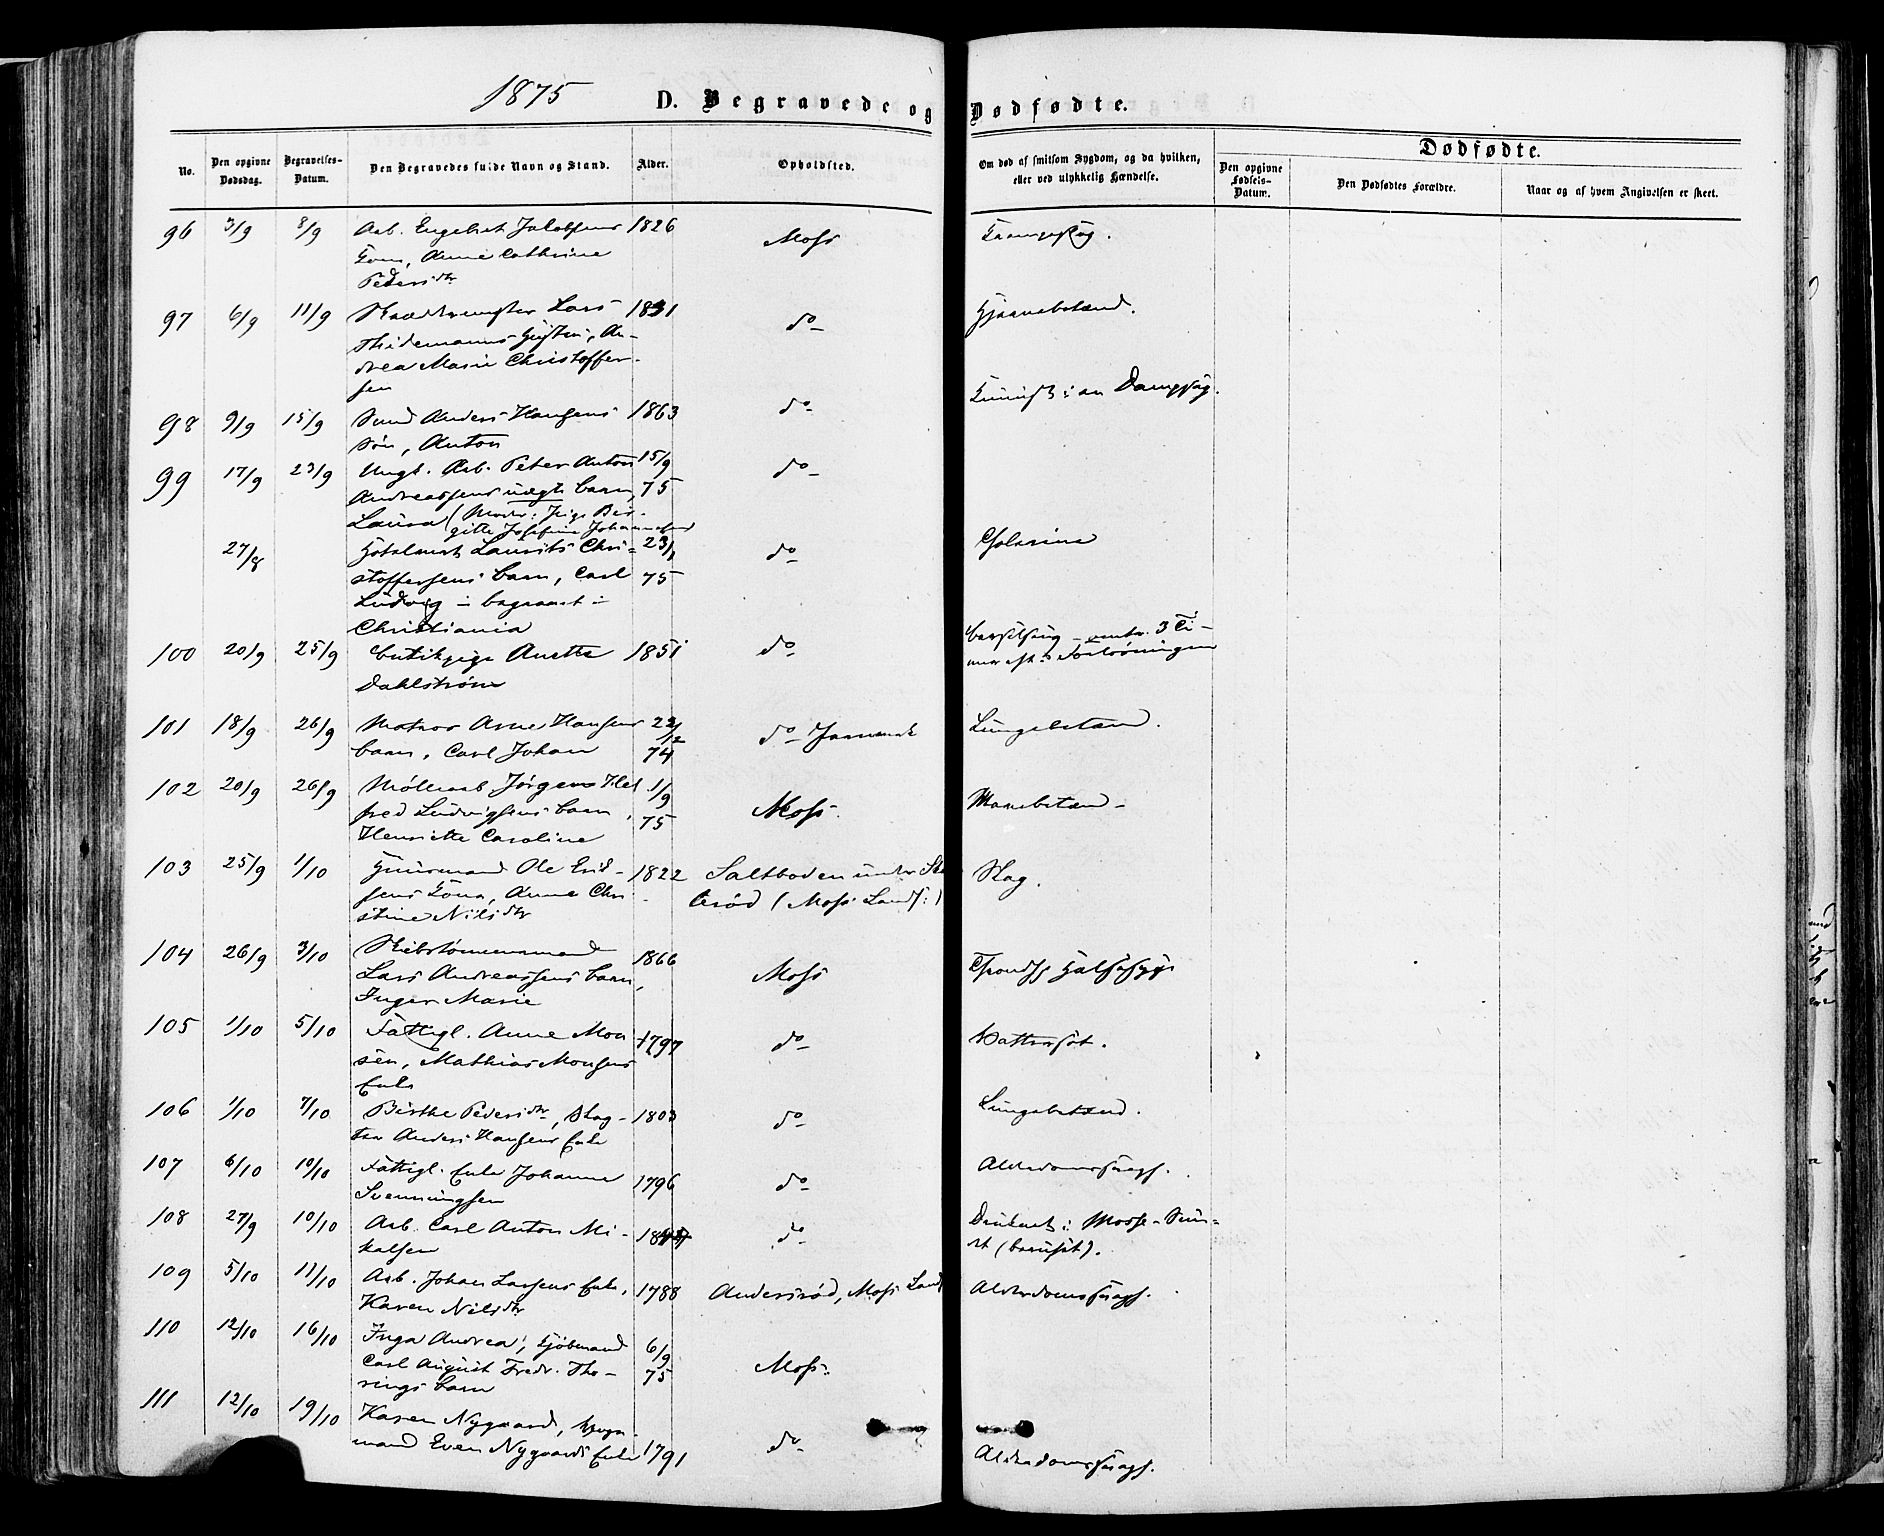 1875
D. Begravede og Dødfødte.
No.
Den opgivne Dødsdag.
Begravelses-Datum.
Den Begravedes fulde Navn og Stand.
Alder.
Opholdsted.
Om død af smitsom Sygdom, og da hvilken, eller ved ulykkelig Hændelse.
Dødfødte.
Den opgivne Fødsels-Datum.
Den Dødfødtes Forældre.
Naar og af hvem Angivelsen er skeet.
96 3/9 8/9 Arb. Engebret Jakobsens 1826 Moss
Kone, Anne Cathrine
Pedersdtr
97 6/9 11/9 Lars 1831 do Hjernebetænd.
Thidemanns Hustru, An-
drea Marie Christoffer-
sen
98 9/9 15/9 Anders Hansens 1863 do i en Dampsag.
søn, Anton
99 17/9 23/9 Ungk. Arb. Peter Anton 15/9 do
Andreassens uægte barn, 75
Laura (Moder: Pige Bir-
gitte Josefine Johannesen
27/8 Laurits Chri- 23/1 do Cholerine
stoffersens barn, Carl 75
Ludvig - begravet i
Christiania
100 20/9 25/9 Anette 1851 do Barselseng - omtr. 3 Ti-
Dahlstrøm mer eft. Forløsningen
101 18/9 26/9 Matros Arne Hansens 22/12 do Lungebetænd.
barn, Carl Johan 74
102 20/9 26/9 Møllearb. Jørgen Hel- 1/9 Moss Mavebetænd-
fred Ludvigsens barn, 75
Henriette Caroline
103 25/9 1/10 Huusmand Ole Erik- 1822 Saltboden under Slag.
sens Kone, Anne Chri- (Moss Lands:)
stine Nilsdtr
104 26/9 3/10 Skibstømmermand 1866 Moss Halssyge
Lars Andreassens barn,
Inger Marie
105 1/10 5/10 Fattigl. Anne Mon- 1797 do Vattersot.
sen, Mathias Monsens
Enke
106 1/10 7/10 Birthe Pedersdtr, Slag- 1803 do Lungebetænd.
ter Anders Hansens Enke
107 6/10 10/10 Fattigl. Enke Johanne 1796 do Alderdomssvagh.
Svenningsen
108 27/9 10/10 Arb. Carl Anton Mi- do Druknet i Mosse-Sun-
kalsen det (beruset).
109 5/10 11/10 Arb. Johan Larsens Enke, 1788 Andersrød, Moss Land Alderdomssvagh.
Karen Nilsdtr
110 12/10 16/10 Inga Andrea, Kjøbmand 6/9 Moss
Carl August Fredr. Tho- 75
rings barn
111 12/10 19/10 Karen Nygaard,
mand Even Nygaards Enke 1791 do Alderdomssvagh.